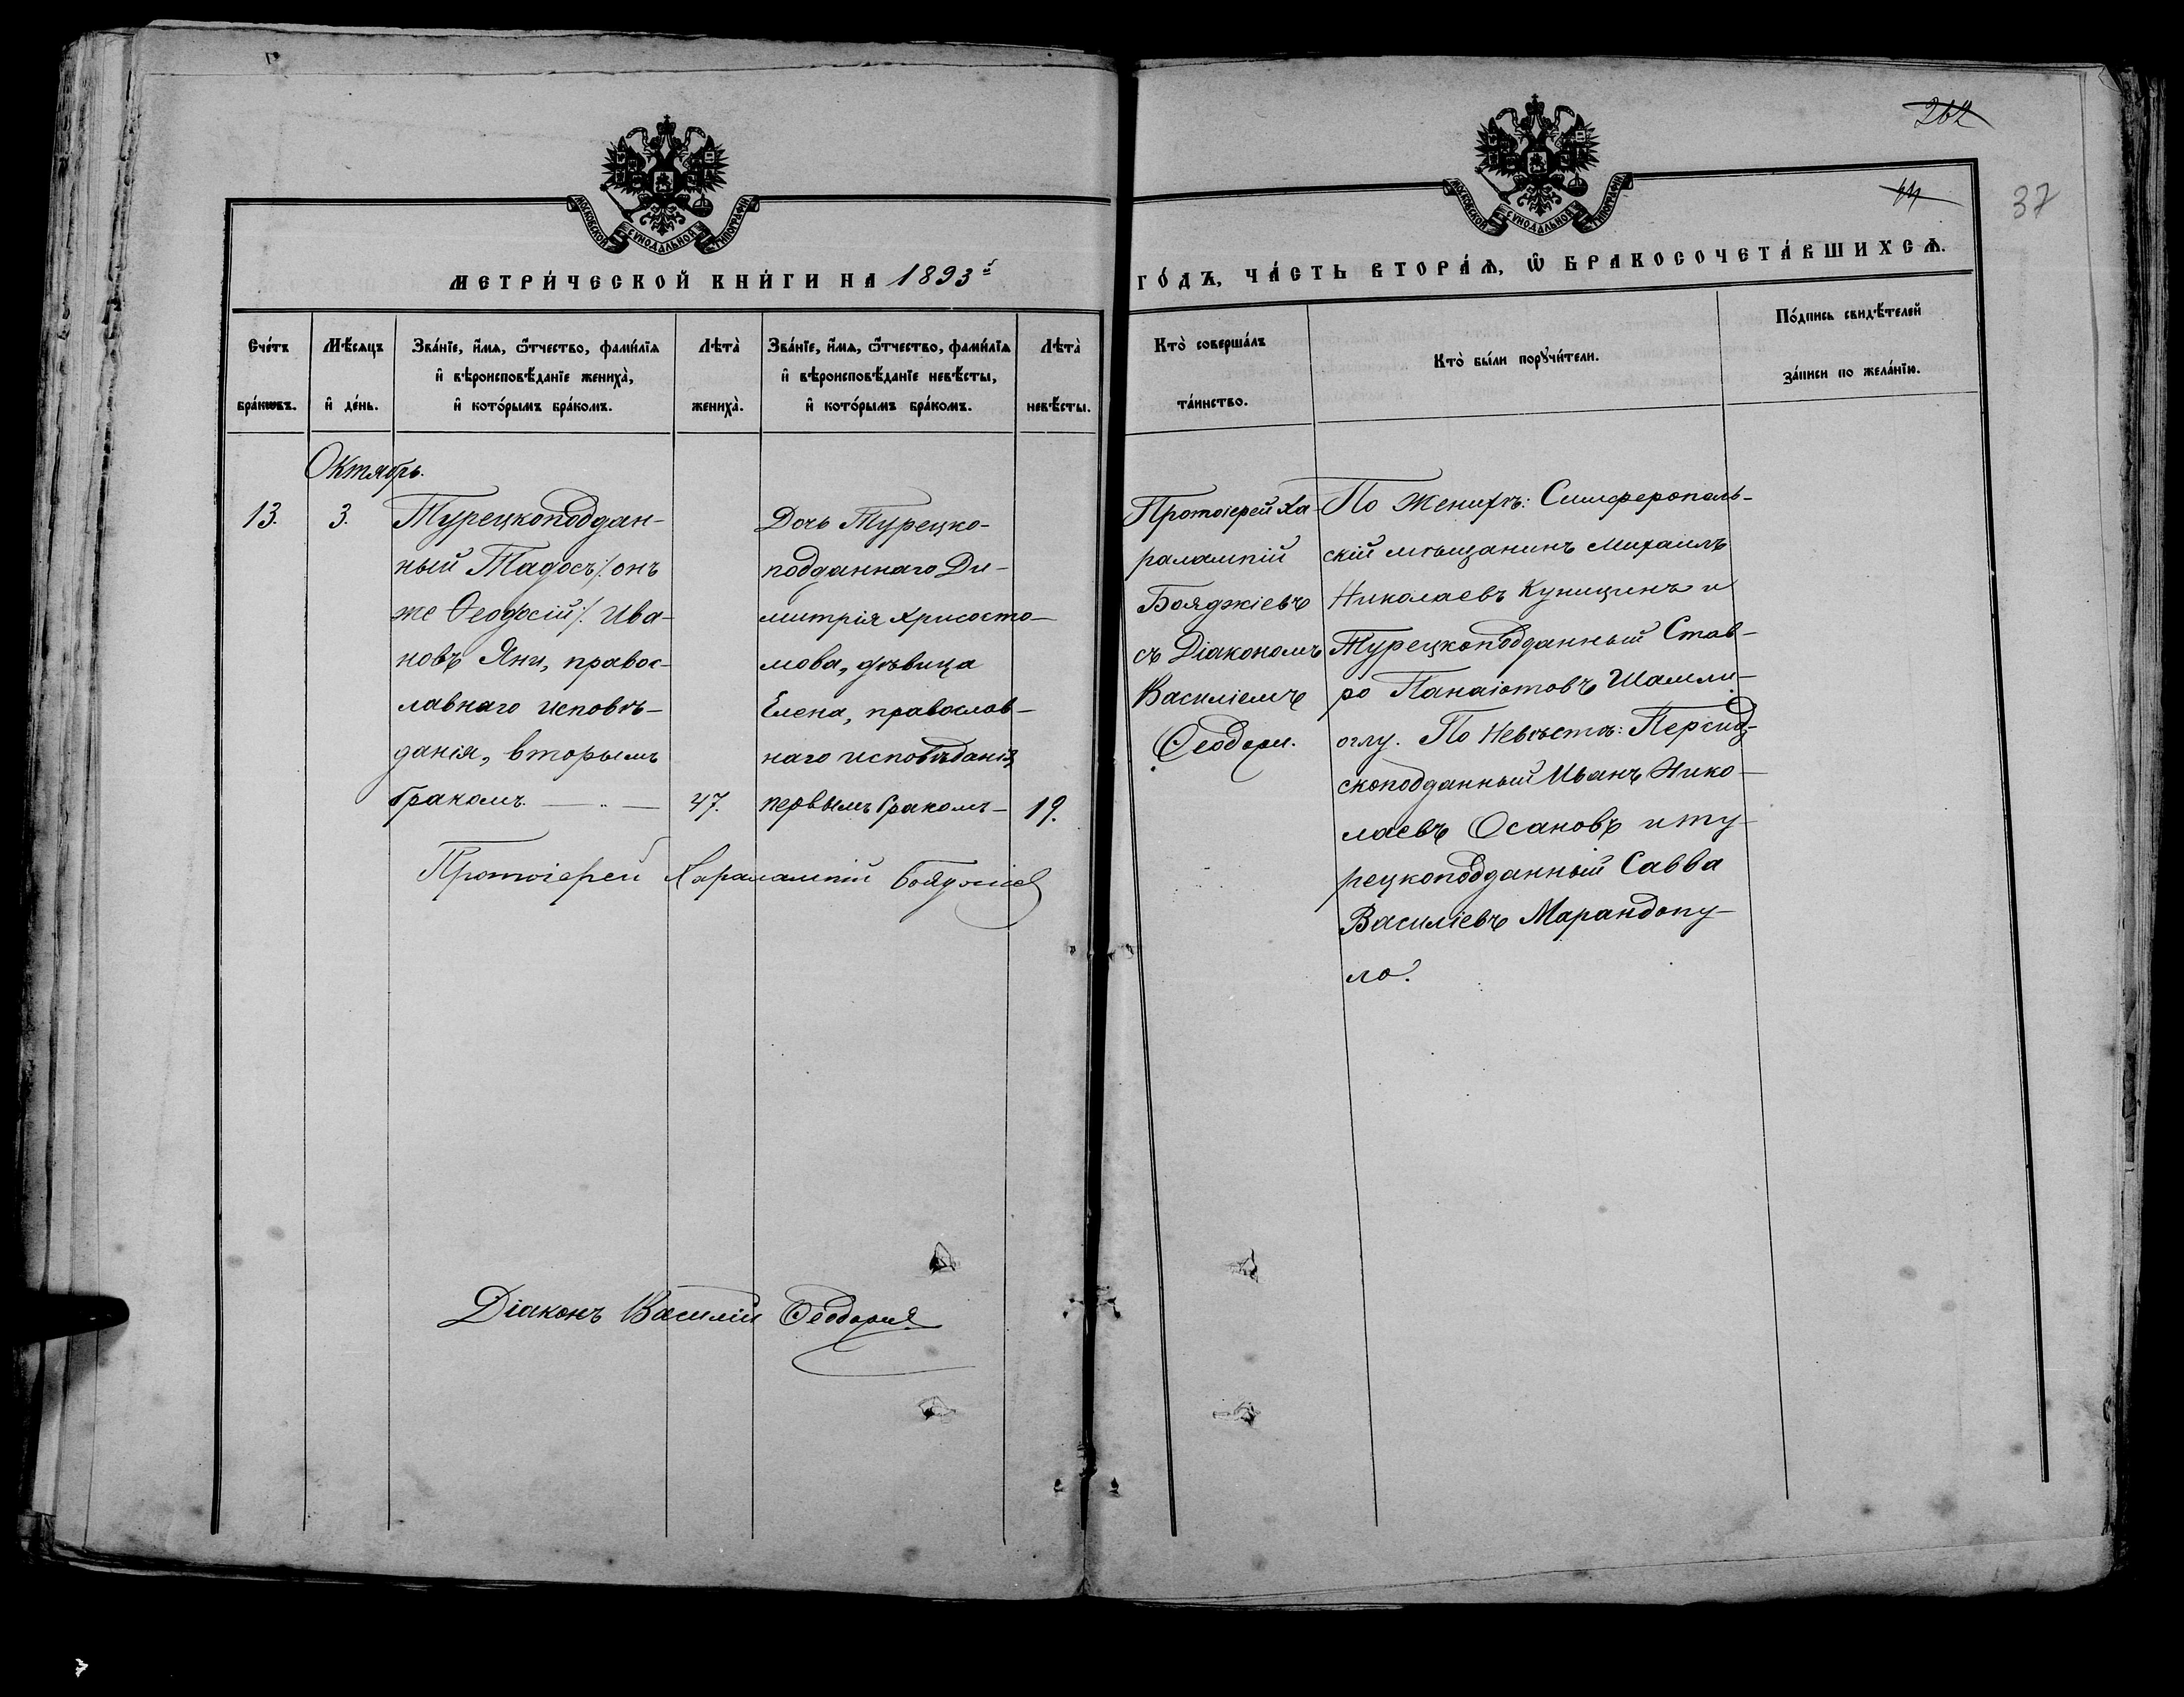 262
44
37
МОСКОВСКОЙ СѴНОДАЛЬНОЙ ТИПОГРАФІИ
МОСКОВСКОЙ СѴНОДАЛЬНОЙ ТИПОГРАФІИ
МЕТРИ́ЧЕСКОЙ КНИ́ГИ НА 1893й
ГО́ДЪ, ЧА́СТЬ ВТОРА́Ѧ, Ѽ БРАКОСОЧЕТА́ВШИХСѦ.
Сче́тъ бра́кѡвъ.
Мѣ́сѧцъ и҆ де́нь.
Зва́нїе, и҆́мѧ, ѻ҆́тчество, фами́лїѧ
и҆ вѣроисповѣ́данїе жениха̀,
и҆ кото́рымъ бра́комъ.
Лѣта̀ жениха̀.
Зва́нїе, и҆́мѧ, ѻ҆́тчество, фами́лїѧ
и҆ вѣроисповѣ́данїе невѣ́сты,
и҆ кото́рымъ бра́комъ.
Лѣта̀ невѣ́сты.
Кто̀ соверша́лъ
та́инство.
Кто̀ бы́ли порꙋчи́тели.
По́дпись свидѣ́телей
за́писи по жела́нїю.
Октябрь.
13.
3.
Турецкоподдан-
ный Тадосъ /: онъ
же Ѳеодосій :/ Ива-
новъ Яни, правос-
лавнаго исповѣ-
данія, вторымъ
бракомъ. — „ —
47.
Дочь Турецко-
подданнаго Ди-
митрія Хрисосто-
мова, дѣвица
Елена, православ-
наго исповѣданія,
первымъ бракомъ —
19.
Протоіерей Ха-
ралампій
Бояджіевъ
съ Діакономъ
Василіемъ
Ѳеодори.
По Женихѣ: Симферополь-
скій мѣщанинъ Михаилъ
Николаевъ Куницинъ и
Турецкоподданный Став-
ро Панаіотовъ Шамли-
оглу. По Невѣстѣ: Персид-
скоподданный Иванъ Нико-
лаевъ Осановъ и ту-
рецкоподданный Савва
Василіевъ Марандопу-
ло.
Протоіерей Харалампій Бояджіев
Діаконъ Василій Ѳеодори